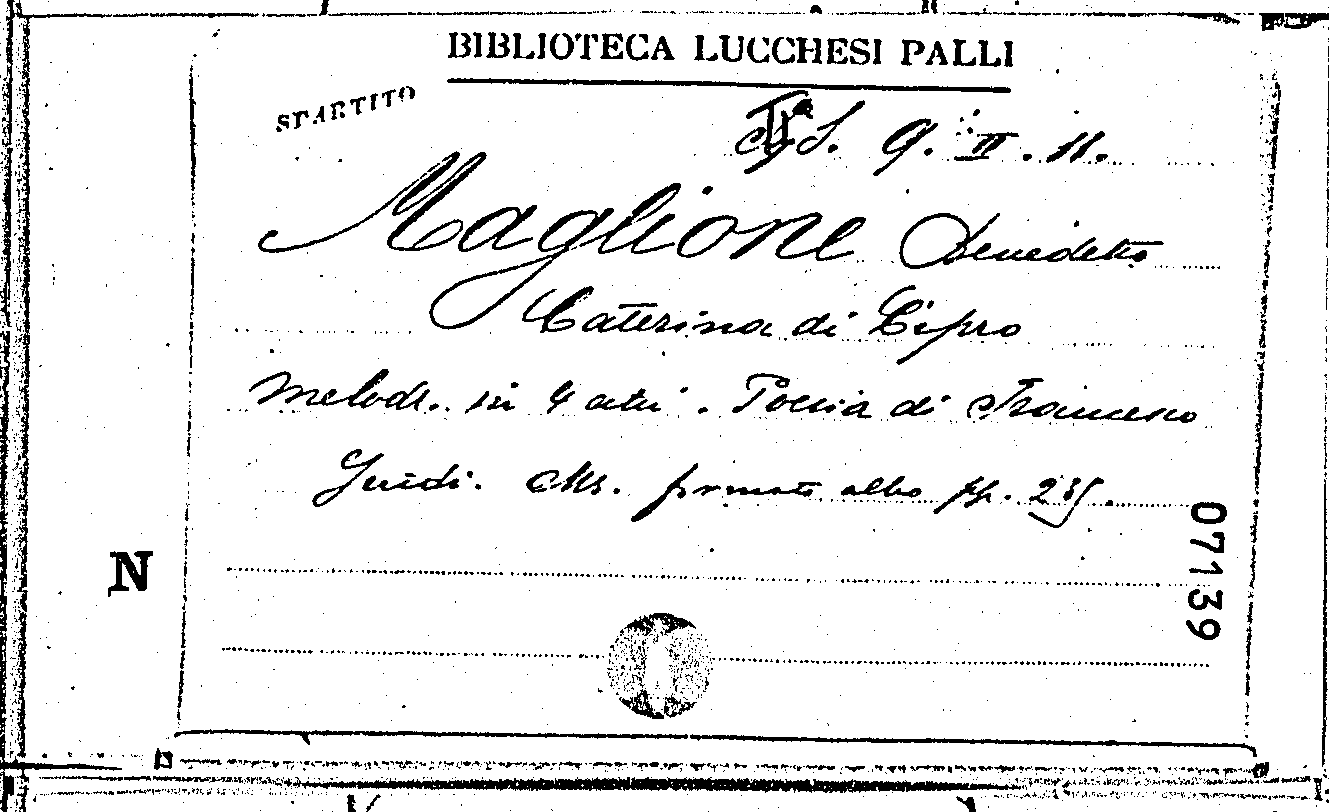 BIBLIOTECA LUCCHESI PALLI
SPARTITO
S. 9. II. 11.
Maglione Benedetto
Caterina di Cipro
Melodr. in 4 atti. Poesia di Francesco
Guidi. Ms. formato albo pp.
07139
N